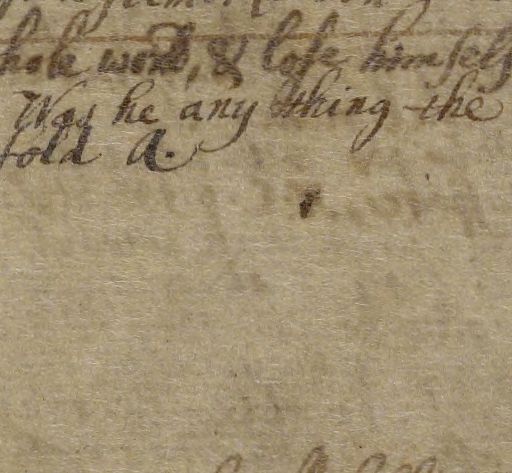 hole world, & lose himself
Was he any thing the
fold A.